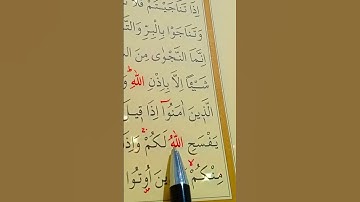 اِذَا تَنَاجَيْتُمْ فَلَا
وَتَنَاجَوْا بِالْبِرِّ وَالتَّ
اِنَّمَا النَّجْوٰى مِنَ ال
شَيْـًٔا اِلَّا بِاِذْنِ اللّٰهِ و
الَّذ۪ينَ اٰمَنُٓوا اِذَا ق۪يلَ
يَفْسَحِ اللّٰهُ لَكُمْ وَاِذَ
مِنْكُمْ ينَ اُوتُوا